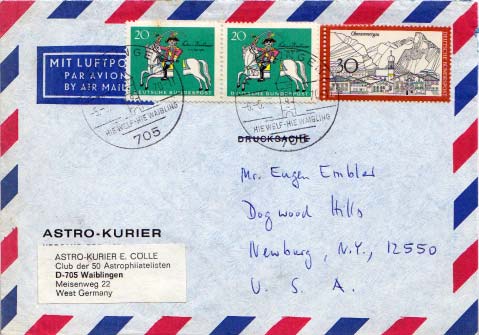 20
20
Oberammergau
DEUTSCHE BUNDESPOST
30
DEUTSCHE BUNDESPOST
DEUTSCHE BUNDESPOST
MIT LUFTPO
PAR AVION
BY AIR MAIL
HIE WELF-HIE WAIBLING
705
HIE WELF-HIE WAIBLING
705
DRUCKSACHE
Mr. Eugen Embler
Dogwood Hills
Newburg, N.Y., 12550
U. S. A.
ASTRO-KURIER
ASTRO-KURIER E. COLLE
Club der 50 Astrophilatelisten
D-705 Waiblingen
Meisenweg 22
West Germany